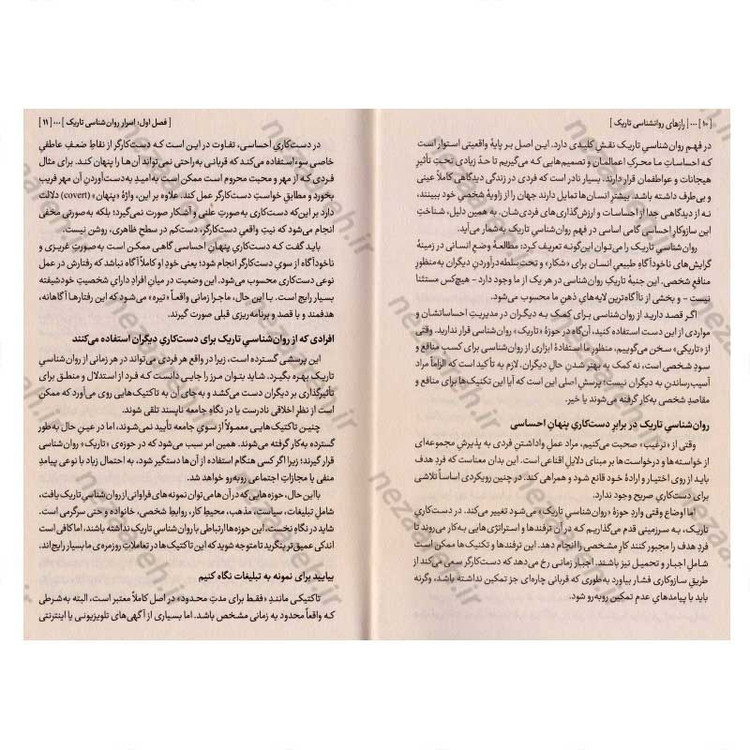 [ ۱۰ ] ••• [ رازهای روانشناسی تاریک ]
در فهم روان‌شناسیِ تاریک نقش کلیدی دارد. این اصل بر پایهٔ واقعیتی استوار است
که احساساتِ ما محرکِ اعمالمان و تصمیم‌هایی که می‌گیریم تا حدّ زیادی تحتِ تأثیرِ
هیجانات و عواطفمان قرار دارند. بسیار نادر است که فردی در زندگی دیدگاهی کاملاً عینی
و بی‌طرف داشته باشد. بیشترِ انسان‌ها تمایل دارند جهان را از زاویهٔ شخصیِ خود ببینند،
نه از دیدگاهی جدا از احساسات و ارزش‌گذاری‌های فردی‌شان. به همین دلیل، شناختِ
این سازوکارِ احساسی گامی اساسی در فهم روان‌شناسیِ تاریک به‌شمار می‌آید.
روان‌شناسیِ تاریک را می‌توان این‌گونه تعریف کرد: مطالعهٔ وضع انسانی در زمینهٔ
گرایش‌های ناخودآگاهِ طبیعیِ انسان برای «شکار» و تحت‌سلطه‌درآوردنِ دیگران به‌منظورِ
منافعِ شخصی. این جنبهٔ تاریکِ روان‌شناسی در هر یک از ما وجود دارد – هیچ‌کس مستثنا
نیست – و بخشی از ناآگاه‌ترین لایه‌های ذهنِ ما محسوب می‌شود.
اگر قصد دارید از روان‌شناسی برای کمک به دیگران در مدیریتِ احساساتشان و
مواردی از این دست استفاده کنید، آن‌گاه در حوزهٔ «تاریک» روان‌شناسی قرار ندارید. وقتی
از «تاریکی» سخن می‌گوییم، منظورِ ما استفادهٔ ابزاری از روان‌شناسی برای کسبِ منافع و
سودِ شخصی است، نه کمک به بهتر شدنِ حالِ دیگران. لازم به تأکید است که الزاماً مرادِ
آسیب‌رساندن به دیگران نیست؛ پرسشِ اصلی این است که آیا این تکنیک‌ها برای منافع و
مقاصدِ شخصی به‌کار گرفته می‌شوند یا خیر.
روان‌شناسیِ تاریک در برابرِ دست‌کاریِ پنهانِ احساسی
وقتی از «ترغیب» صحبت می‌کنیم، مراد عملِ واداشتنِ فردی به پذیرشِ مجموعه‌ای
از خواسته‌ها و درخواست‌ها بر مبنای دلایلِ اقناعی است. این بدان معناست که فردِ هدف
باید از روی اختیار و ارادهٔ خود قانع شود و همراهی کند. در چنین رویکردی اساساً تلاشی
برای دست‌کاریِ صریح وجود ندارد.
اما اوضاع وقتی واردِ حوزهٔ «روان‌شناسیِ تاریک» می‌شود تغییر می‌کند. در دست‌کاریِ
تاریک، به سرزمینی قدم می‌گذاریم که در آن ترفندها و استراتژی‌هایی به‌کار می‌روند تا
فردِ هدف را مجبور کنند کارِ مشخصی را انجام دهد. این ترفندها و تکنیک‌ها ممکن است
شاملِ اجبار و تحمیل نیز باشند. اجبار زمانی رخ می‌دهد که دست‌کارگر سعی می‌کند از
طریقِ سازوکاری فشار بیاورد به‌طوری‌که قربانی چاره‌ای جز تمکین نداشته باشد، وگرنه
باید با پیامدهایِ عدمِ تمکین روبه‌رو شود.
[ فصل اول: اسرارِ روان‌شناسی تاریک ] ••• [ ۱۱ ]
در دست‌کاریِ احساسی، تفاوت در این است که دست‌کارگر از نقاطِ ضعفِ عاطفیِ
خاصی سوءاستفاده می‌کند که قربانی به‌راحتی نمی‌تواند آن‌ها را پنهان کند. برای مثال
فردی که از مهر و محبت محروم است ممکن است به‌امیدِ به‌دست‌آوردنِ آن مهر فریب
بخورد و مطابقِ خواستِ دست‌کارگر عمل کند. علاوه بر این، واژهٔ «پنهان» (covert) دلالت
دارد بر این‌که دست‌کاری به‌صورتِ علنی و آشکار صورت نمی‌گیرد؛ بلکه به‌صورتِ مخفی
انجام می‌شود که نیتِ واقعیِ دست‌کارگر، دست‌کم در سطحِ ظاهری، روشن نیست.
باید گفت که دست‌کاریِ پنهانِ احساسی گاهی ممکن است به‌صورتِ غریزی و
ناخودآگاه از سویِ دست‌کارگر انجام شود؛ یعنی خودِ او کاملاً آگاه نباشد که رفتارش در عمل
نوعی دست‌کاری محسوب می‌شود. این وضعیت در میانِ افرادِ دارای شخصیتِ خودشیفته
بسیار رایج است. با این حال، ماجرا زمانی واقعاً «تیره» می‌شود که این رفتارها آگاهانه،
هدفمند و با قصد و برنامه‌ریزیِ قبلی صورت گیرند.
افرادی که از روان‌شناسیِ تاریک برای دست‌کاریِ دیگران استفاده می‌کنند
این پرسشی گسترده است، زیرا در واقع هر فردی می‌تواند در هر زمانی از روان‌شناسیِ
تاریک بهره بگیرد. شاید بتوان مرز را جایی دانست که فرد از استدلال و منطق برای
تأثیرگذاری بر دیگران دست می‌کشد و به جای آن به تاکتیک‌هایی روی می‌آورد که ممکن
است از نظرِ اخلاقی نادرست یا در نگاهِ جامعه ناپسند تلقی شوند.
چنین تاکتیک‌هایی معمولاً از سویِ جامعه تأیید نمی‌شوند، اما در عینِ حال به‌طورِ
گسترده به‌کار گرفته می‌شوند. همین امر سبب می‌شود که در حوزه‌یِ «تاریکِ» روان‌شناسی
قرار گیرند؛ زیرا اگر کسی هنگامِ استفاده از آن‌ها دستگیر شود، به احتمالِ زیاد با نوعی پیامدِ
منفی یا مجازاتِ اجتماعی روبه‌رو خواهد شد.
با این حال، حوزه‌هایی که در آن‌ها می‌توان نمونه‌های فراوانی از روان‌شناسیِ تاریک یافت،
شاملِ تبلیغات، سیاست، مذهب، محیطِ کار، روابطِ شخصی، خانواده و حتی سرگرمی است.
شاید در نگاهِ نخست، این حوزه‌ها ارتباطی با روان‌شناسیِ تاریک نداشته باشند. اما کافی است
اندکی عمیق‌تر بنگرید تا متوجه شوید که این تاکتیک‌ها در تعاملاتِ روزمره‌ی ما بسیار رایج‌اند.
بیایید برای نمونه به تبلیغات نگاه کنیم
تاکتیکی مانندِ «فقط برای مدتِ محدود» در اصل کاملاً معتبر است، البته به‌شرطی
که واقعاً محدود به زمانی مشخص باشد. اما بسیاری از آگهی‌های تلویزیونی یا اینترنتی
nezaaheh.ir